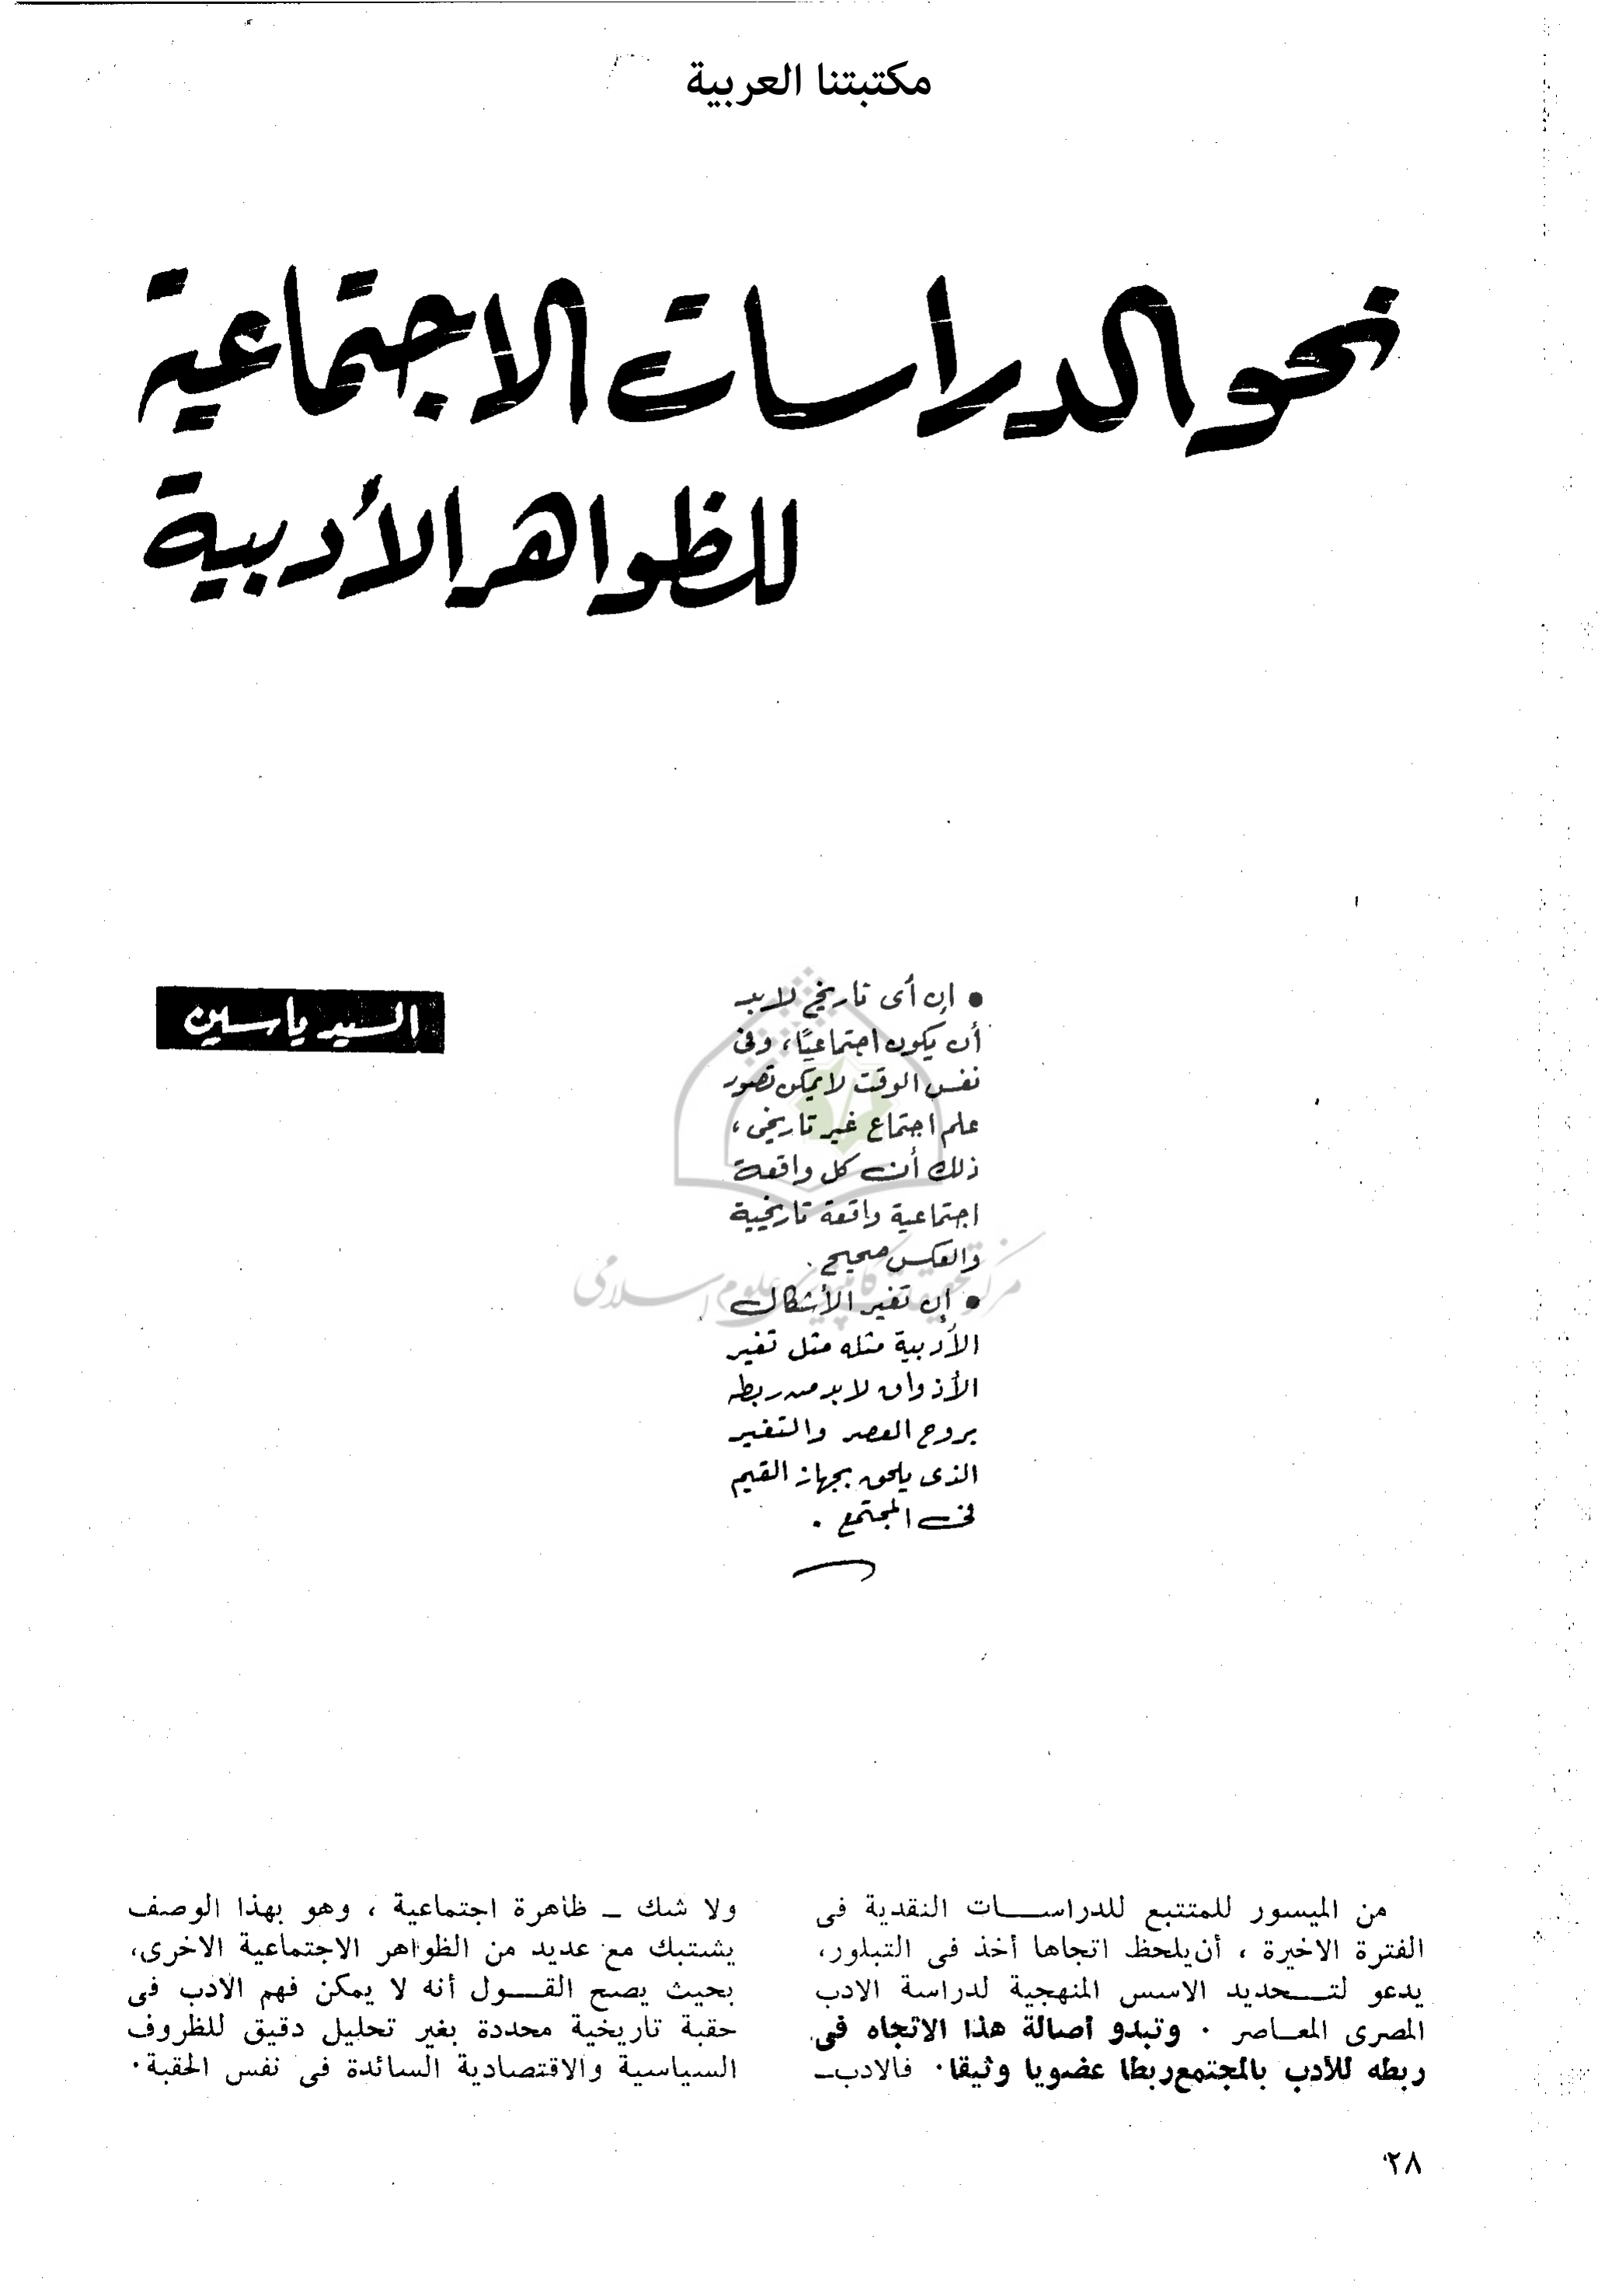 مكتبتنا العربية
نحو الدراسات الاجتماعية
للظواهر الأدبية
السيد ياسين
● إن أى تاريخ لابد
أن يكون اجتماعيًا، وفى
نفس الوقت لا يمكن تصور
علم اجتماع غير تاريخى،
ذلك أن كل واقعة
اجتماعية واقعة تاريخية
والعكس صحيح.
● إن تغير الأشكال
الأدبية مثله مثل تغير
الأذواق لابد من ربطه
بروح العصر والتغير
الذى يلحق بجهاز القيم
فى المجتمع.
مركز تحقيقات كامپيوترى علوم اسلامى
من الميسور للمتتبع للدراسات النقدية فى
الفترة الاخيرة ، أن يلحظ اتجاها أخذ فى التبلور،
يدعو لتحديد الاسس المنهجية لدراسة الادب
المصرى المعاصر . وتبدو أصالة هذا الاتجاه فى
ربطه للأدب بالمجتمع ربطا عضويا وثيقا. فالادب ـ
ولا شك ـ ظاهرة اجتماعية ، وهو بهذا الوصف
يشتبك مع عديد من الظواهر الاجتماعية الاخرى،
بحيث يصح القول أنه لا يمكن فهم الادب فى
حقبة تاريخية محددة بغير تحليل دقيق للظروف
السياسية والاقتصادية السائدة فى نفس الحقبة.
٢٨